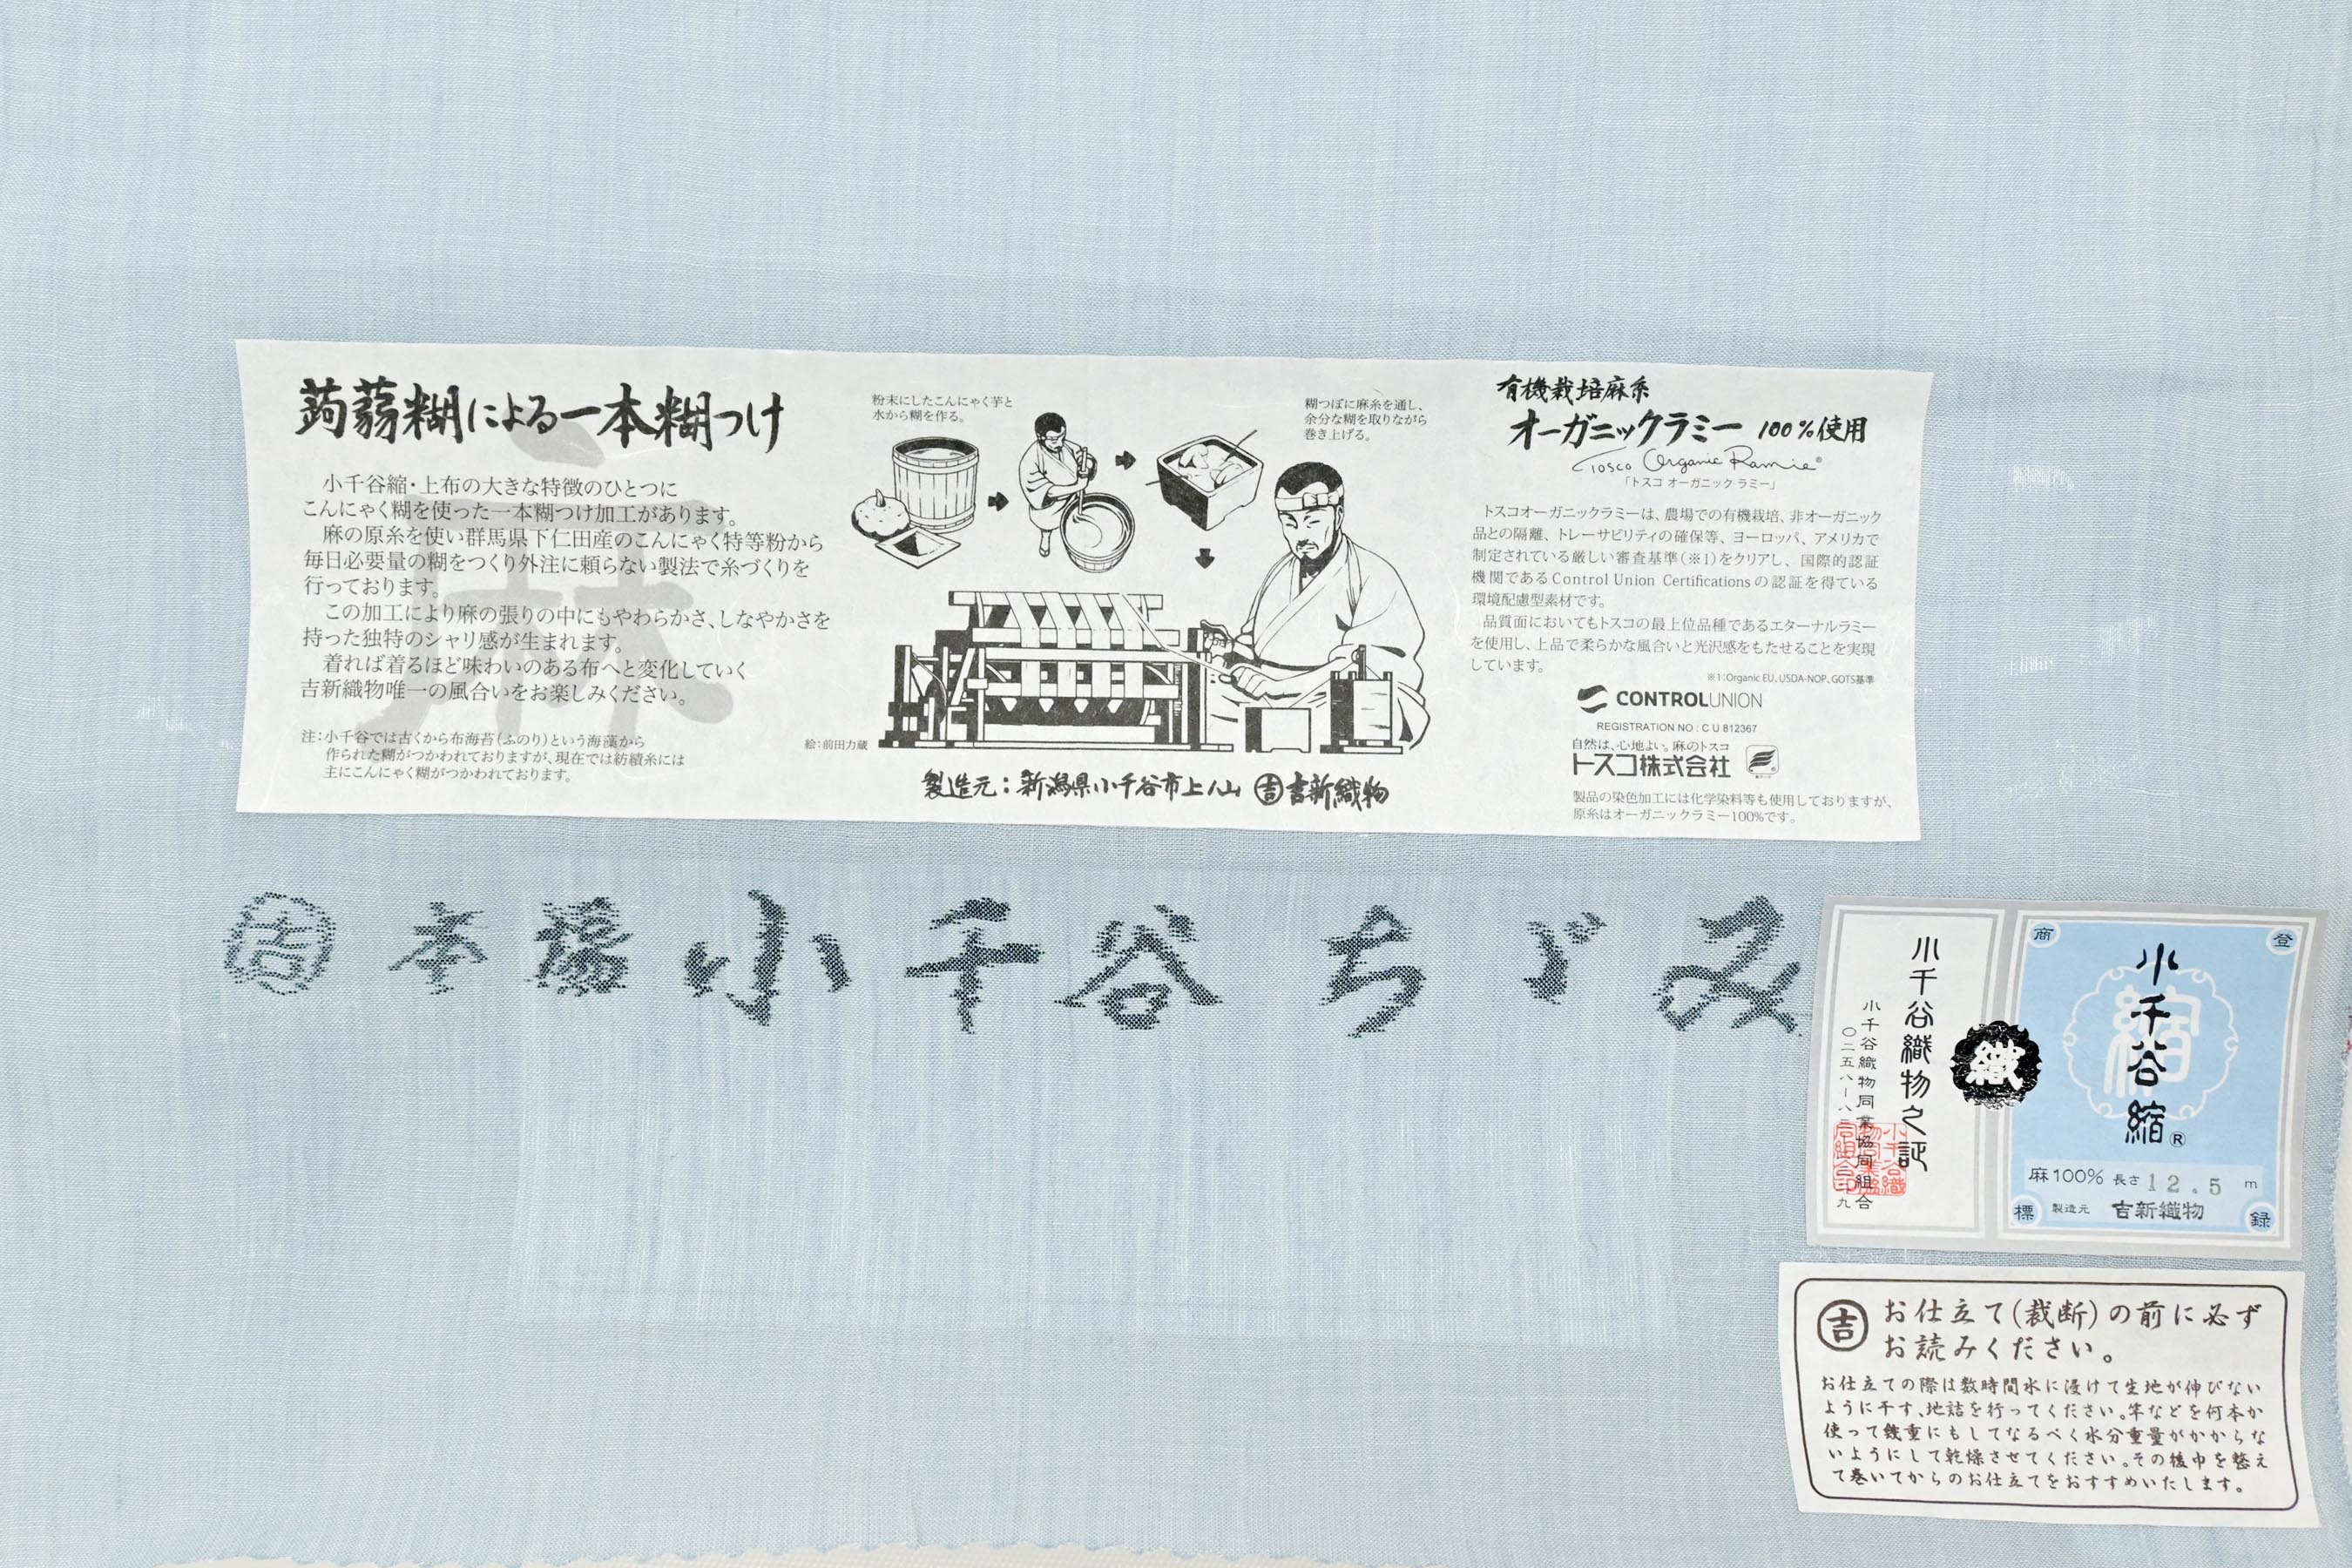 蒟蒻糊による一本糊つけ
小千谷縮・上布の大きな特徴のひとつに
こんにゃく糊を使った一本糊つけ加工があります。
麻の原糸を使い群馬県下仁田産のこんにゃく特等粉から
毎日必要量の糊をつくり外注に頼らない製法で糸づくりを
行っております。
この加工により麻の張りの中にもやわらかさ、しなやかさを
持った独特のシャリ感が生まれます。
着れば着るほど味わいのある布へと変化していく
吉新織物唯一の風合いをお楽しみください。
注:小千谷では古くから布海苔(ふのり)という海藻から
作られた糊がつかわれておりますが、現在では紡績糸には
主にこんにゃく糊がつかわれております。
麻
粉末にしたこんにゃく芋と
水から糊を作る。
糊つぼに麻糸を通し、
余分な糊を取りながら
巻き上げる。
絵:前田力蔵
製造元:新潟県小千谷市上ノ山 ㊁吉新織物
有機栽培麻糸
オーガニックラミー 100%使用
Tosco Organic Ramie®
「トスコ オーガニック ラミー」
トスコオーガニックラミーは、農場での有機栽培、非オーガニック
品との隔離、トレーサビリティの確保等、ヨーロッパ、アメリカで
制定されている厳しい審査基準(※1)をクリアし、国際的認証
機関であるControl Union Certificationsの認証を得ている
環境配慮型素材です。
品質面においてもトスコの最上位品種であるエターナルラミー
を使用し、上品で柔らかな風合いと光沢感をもたせることを実現
しています。
※1:Organic EU、USDA-NOP、GOTS基準
CONTROLUNION
REGISTRATION NO : C U 812367
自然は、心地よい。麻のトスコ
トスコ株式会社
製品の染色加工には化学染料等も使用しておりますが、
原糸はオーガニックラミー100%です。
吉 本場小千谷ちゞみ
小千谷織物之証
小千谷織物同業協同組合
織
登録商標
縮
小千谷縮®
麻100% 長さ12.5 m
製造元 吉新織物
吉 お仕立て(裁断)の前に必ず
お読みください。
お仕立ての際は数時間水に浸けて生地が伸びない
ように干す、地詰を行ってください。竿などを何本か
使って幾重にもしてなるべく水分重量がかからな
いようにして乾燥させてください。その後巾を整え
て巻いてからのお仕立てをおすすめいたします。